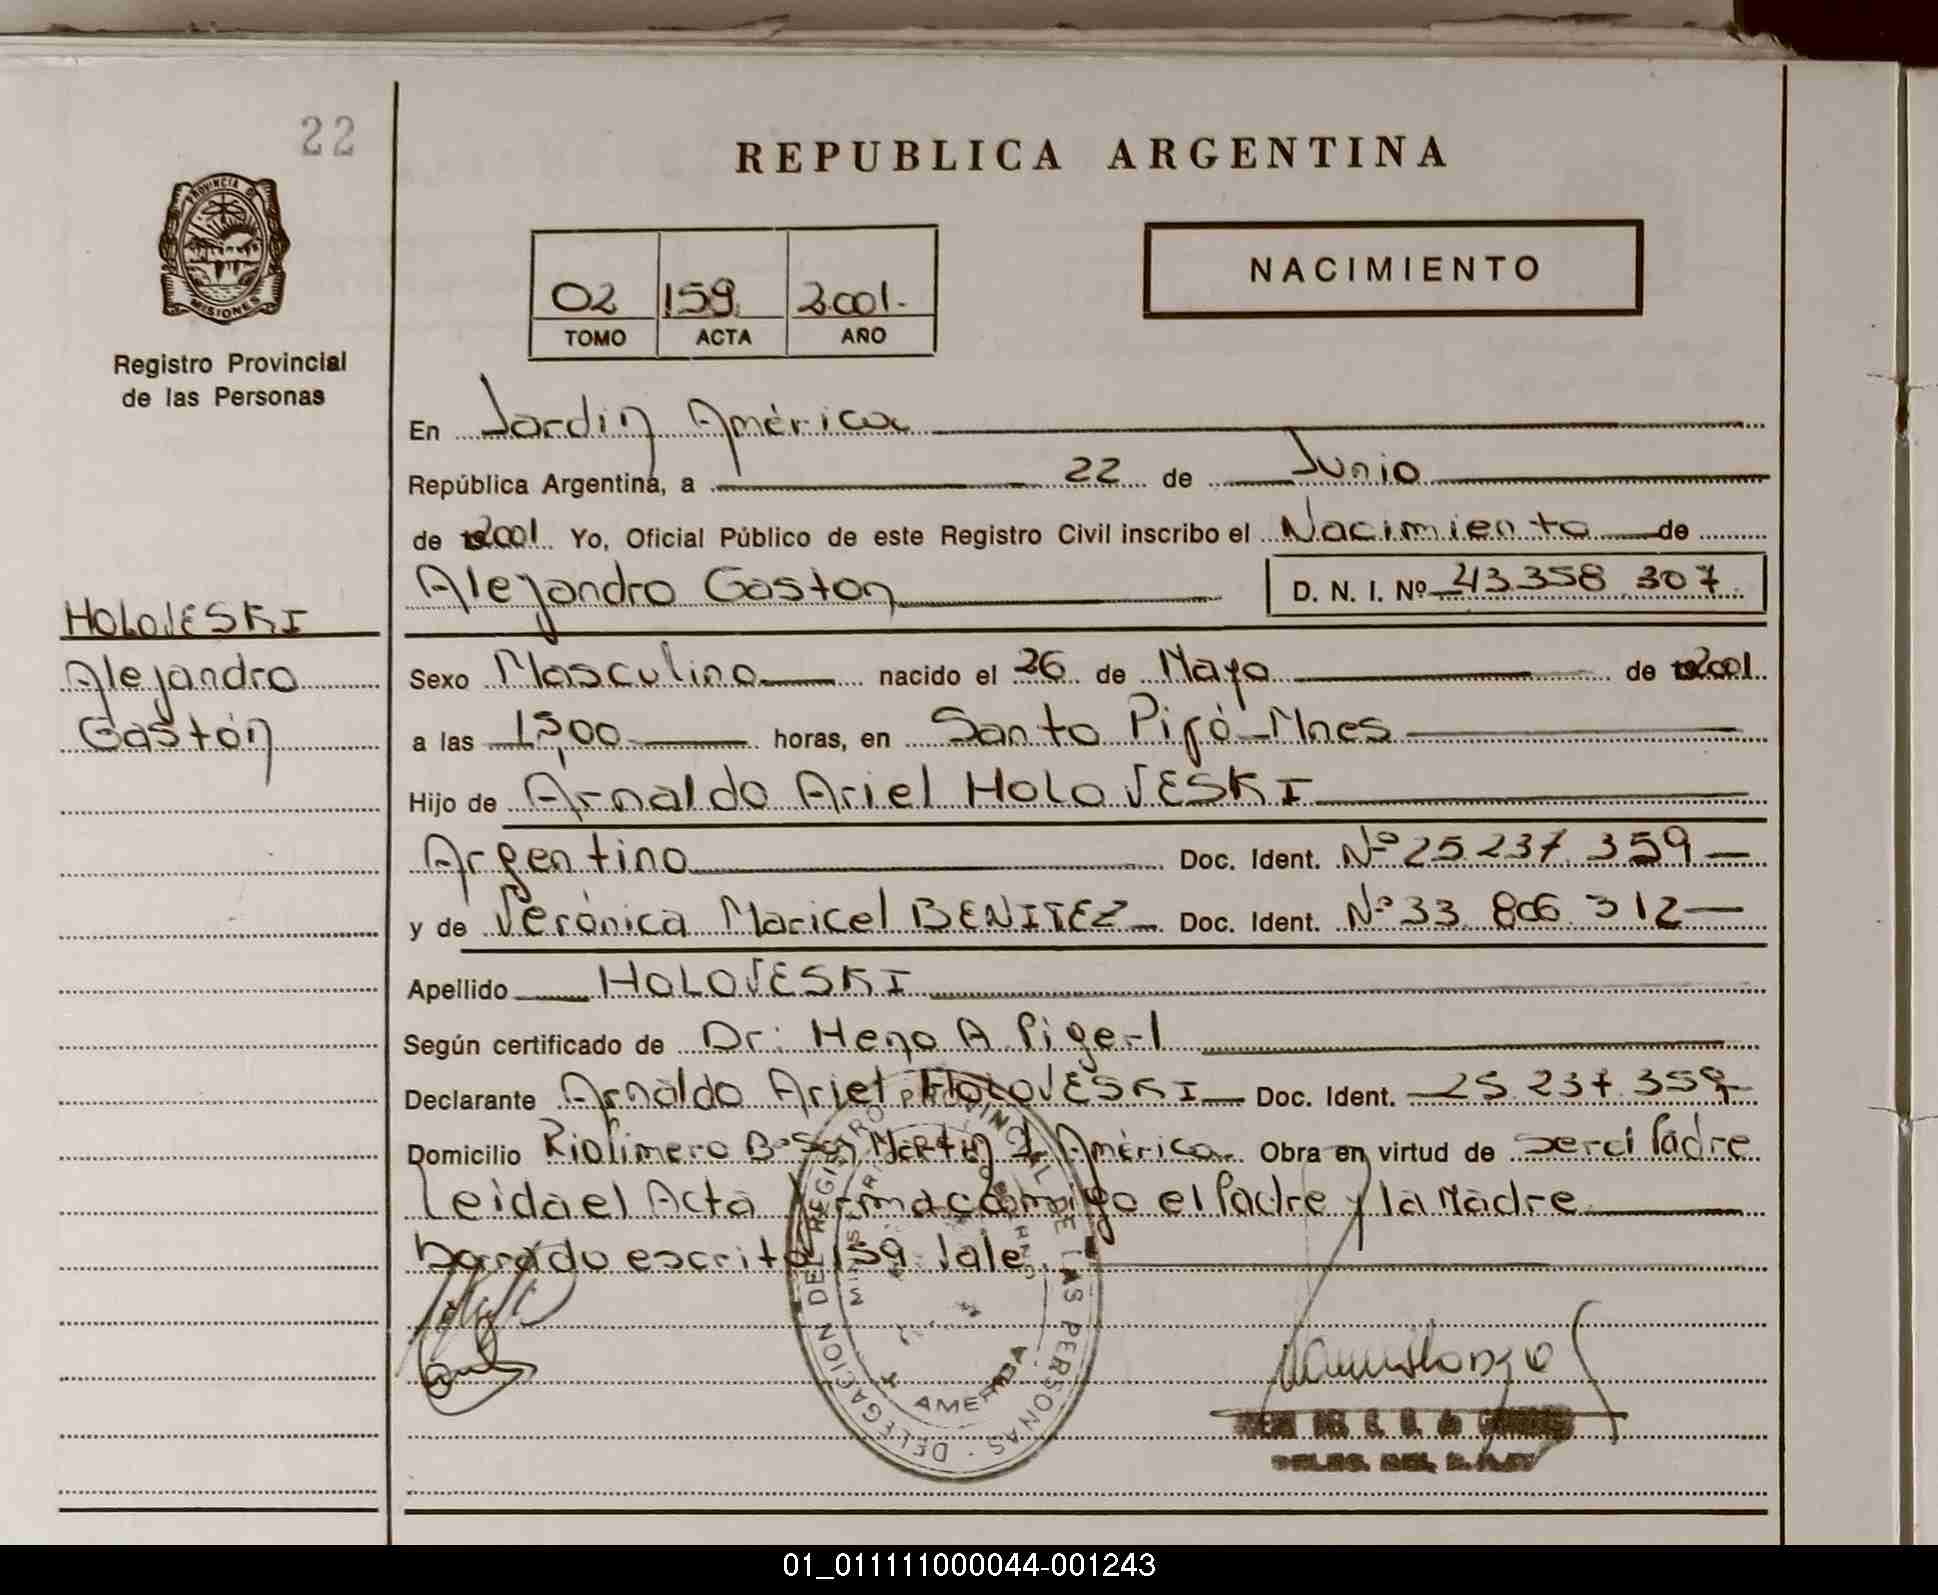 22
REPUBLICA ARGENTINA
PROVINCIA DE
MISIONES
Registro Provincial
de las Personas
NACIMIENTO
02 159 2.001.-
TOMO ACTA AÑO
En Jardín América
República Argentina, a 22 de Junio
de 2001 Yo, Oficial Público de este Registro Civil inscribo el Nacimiento de
Alejandro Gaston D. N. I. Nº 43.358.307
HOLOVESKI
Alejandro
Gastón
Sexo Masculino nacido el 26 de Mayo de 2001
a las 15,00 horas, en Santo Pipó-Mnes
Hijo de Arnaldo Ariel HOLOVESKI
Argentino Doc. Ident. Nº 25.237.359
y de Verónica Maricel BENITEZ Doc. Ident. Nº 33.806.312
Apellido HOLOVESKI
Según certificado de Dr: Heno A.
Declarante Arnaldo Ariel HOLOVESKI Doc. Ident. 25.237.359
Domicilio Bº San Martin J. América Obra en virtud de ser el Padre
Leida el Acta firma conmigo el Padre y la Madre
barrado escrito 159. Vale.
DELEGACION DEL REGISTRO PROVINCIAL DE LAS PERSONAS
AMERICA
01_011111000044-001243